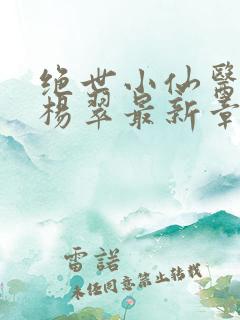 绝世小仙醫
杨翠最新章
雷諾
未经同意禁止转载